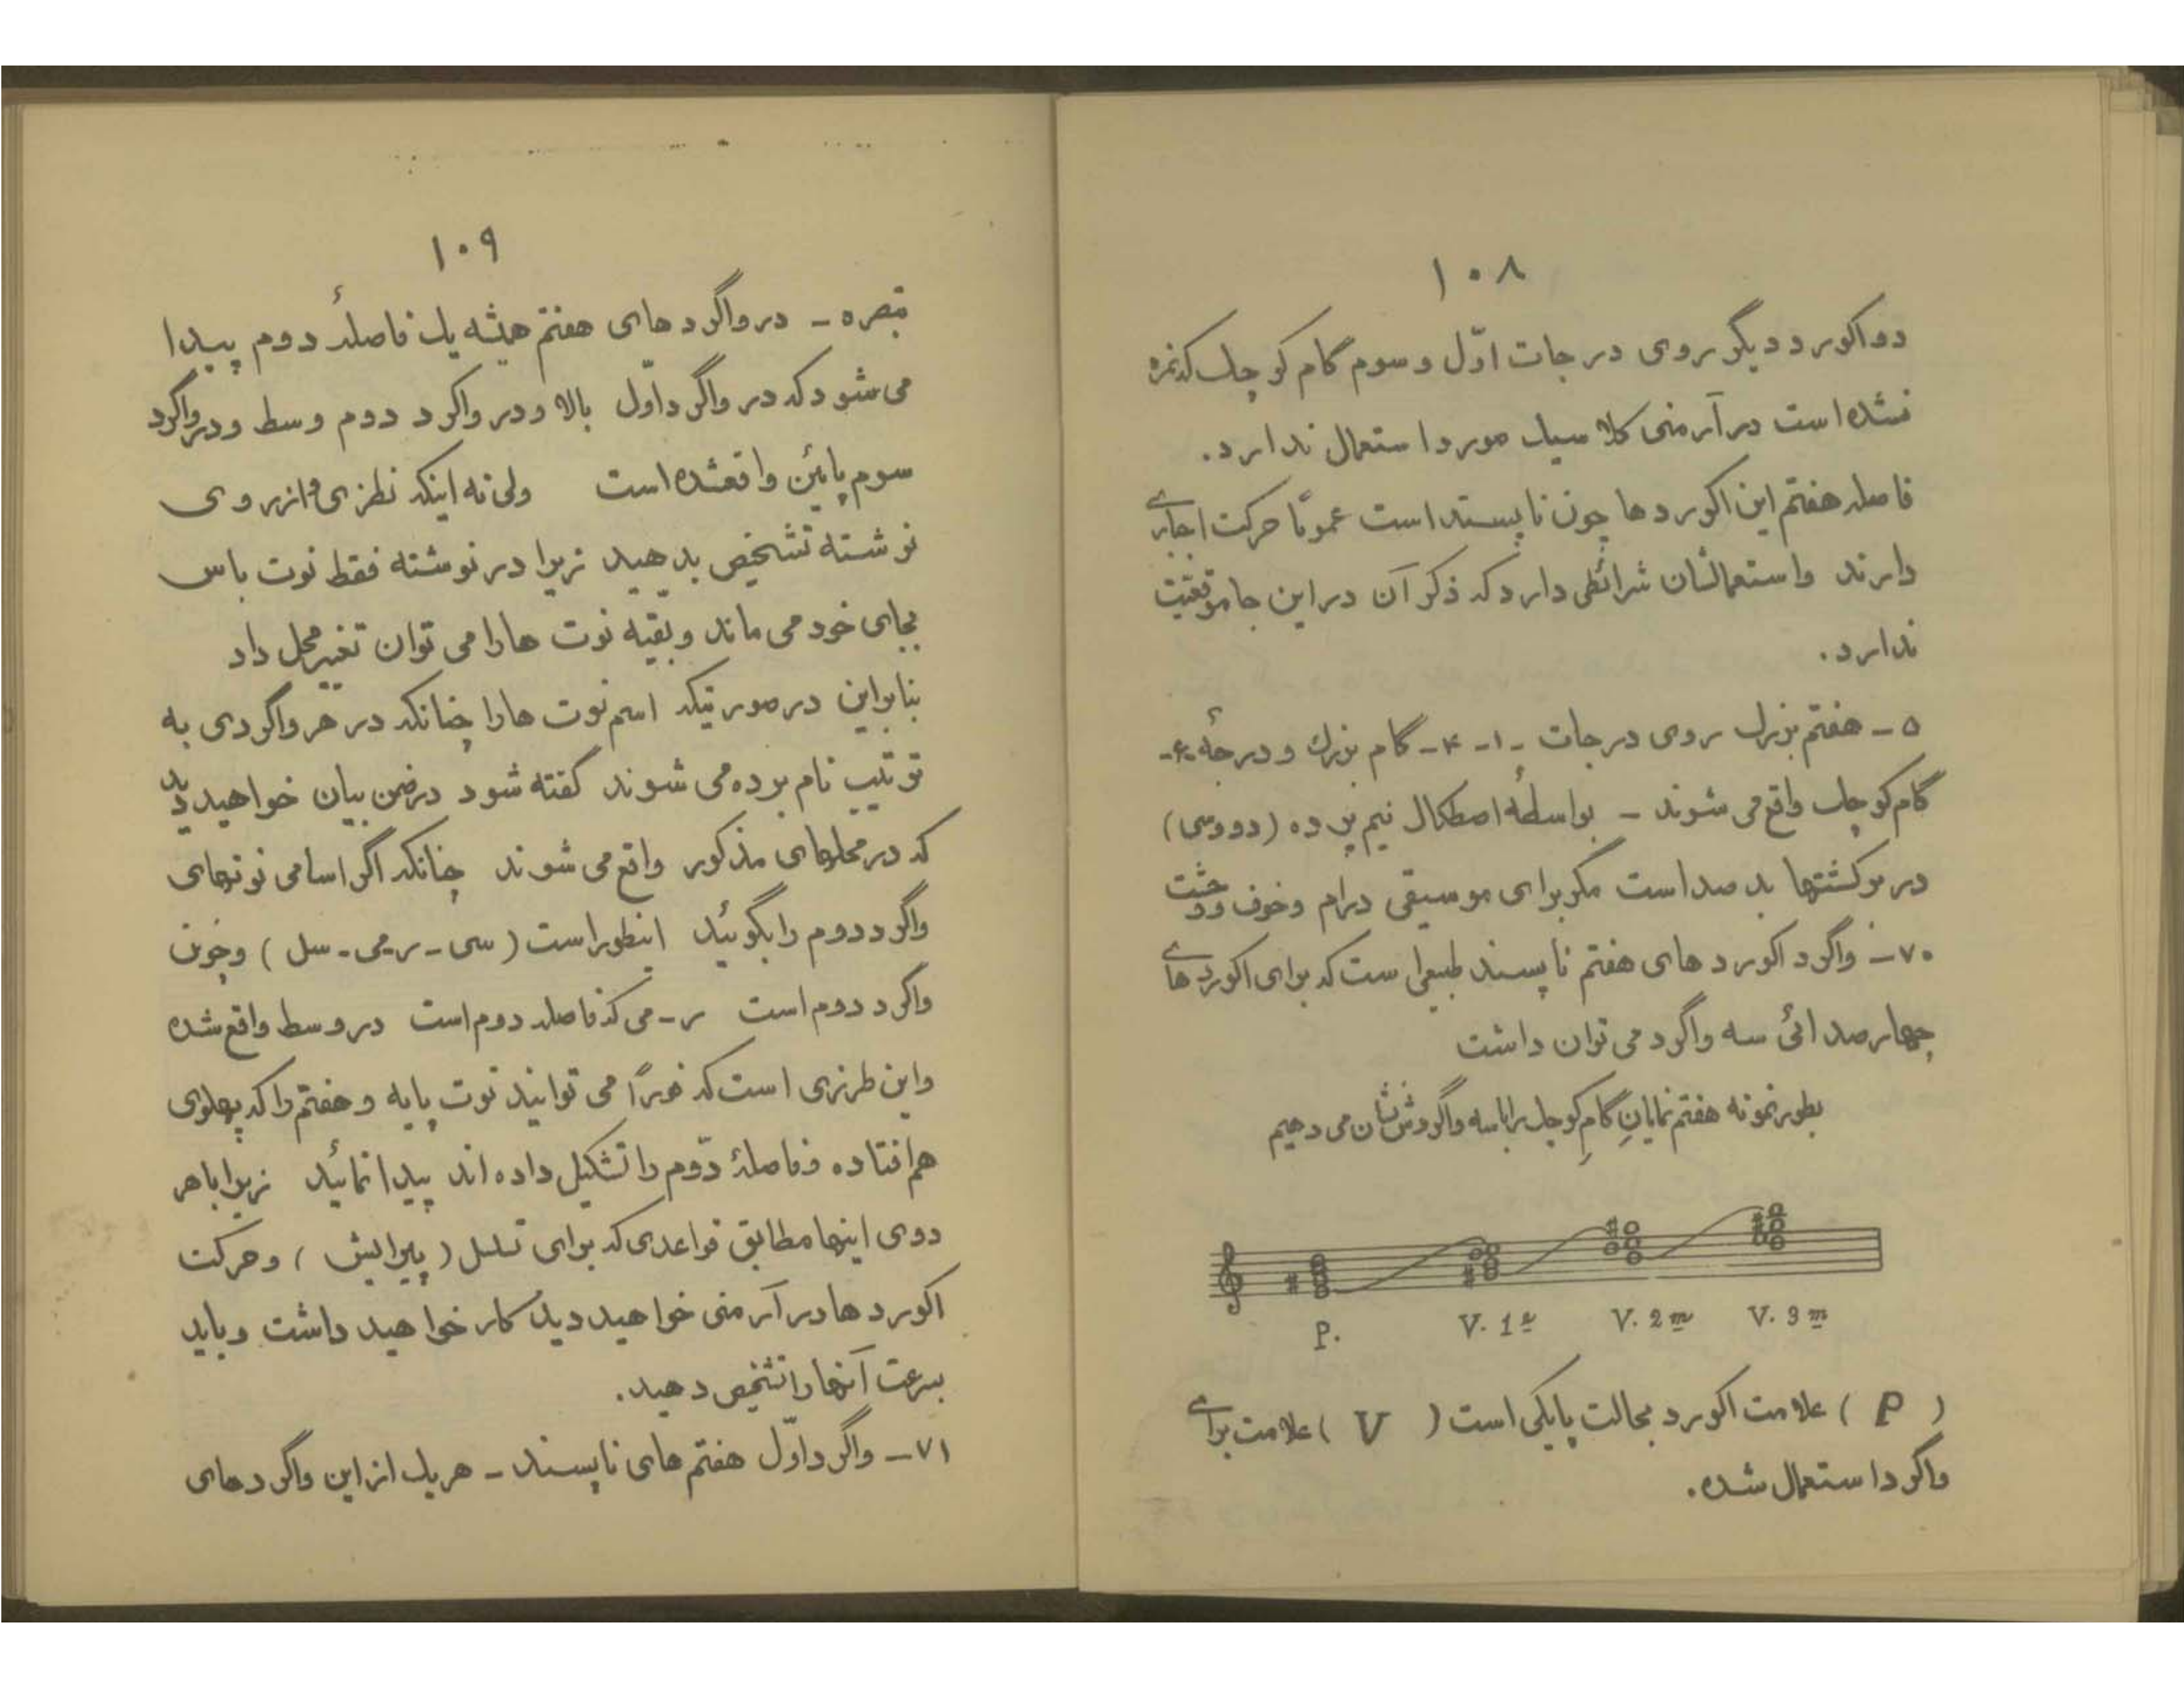 ۱۰۸
دو اکورد دیگر روی درجات اوّل و سوم گام کوچک که نمره
نشده است در آرمنی کلاسیک مورد استعمال ندارد.
فاصله هفتم این اکوردها چون ناپسند است عموماً حرکت اجباری
دارند و استعمالشان شرائطی دارد که ذکر آن در این جا موقعیّت
ندارد.
۵ - هفتم بزرگ روی درجات - ۱ - ۴ - گام بزرگ و درجهٔ ۶ -
گام کوچک واقع می شوند - بواسطهٔ اصطکاک نیم پرده (دو و سی)
در برگشتها بد صدا است مگر برای موسیقی درام و خوف و وحشت
۷۰ - واگرد اکورد های هفتم ناپسند طبیعی است که برای اکورد های
چهار صدائی سه واگرد می توان داشت
بطور نمونه هفتم نمایانِ گامِ کوچک را با سه واگردش نشان می دهیم
P. V. 1e V. 2m V. 3m
( P ) علامت اکورد بحالت پایگی است ( V ) علامت برای
واگرد استعمال شده.
۱۰۹
تبصره - در واگرد های هفتم همیشه یک فاصلهٔ دوم پیدا
می شود که در واگرد اوّل بالا و در واگرد دوم وسط و در واگرد
سوم پائین واقعشده است ولی نه اینکه نظری و از روی
نوشته تشخیص بدهید زیرا در نوشته فقط نوت باس
بجای خود می ماند و بقیّه نوت ها را می توان تغییر محل داد
بنابراین در صورتیکه اسم نوت ها را چنانکه در هر واگردی به
ترتیب نام برده می شوند گفته شود در ضمن بیان خواهید دید
که در محلهای مذکور واقع می شوند چنانکه اگر اسامی نوتهای
واگرد دوم را بگوئید اینطور است (سی - ر - می - سل) و چون
واگرد دوم است ر - می که فاصله دوم است در وسط واقع شده
و این طرزی است که فوراً می توانید نوت پایه و هفتم را که پهلوی
هم افتاده و فاصلهٔ دوّم را تشکیل داده اند پیدا نمائید زیرا با هر
دوی اینها مطابق قواعدی که برای تسلسل (پیرایش) و حرکت
اکورد ها در آرمنی خواهید دید کار خواهید داشت و باید
بسرعت آنها را تشخیص دهید.
۷۱ - واگرد اوّل هفتم های ناپسند - هر یک از این واگرد های